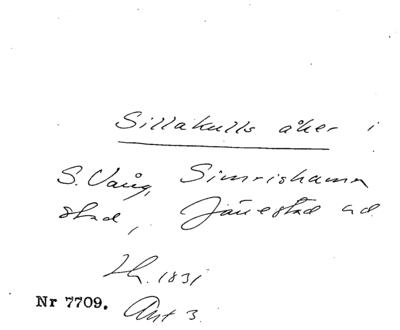 Sillakulls åker i
S. Vång, Simrishamn
stad, Järrestad hd.
Lh. 1831
Nr 7709. Akt 3.